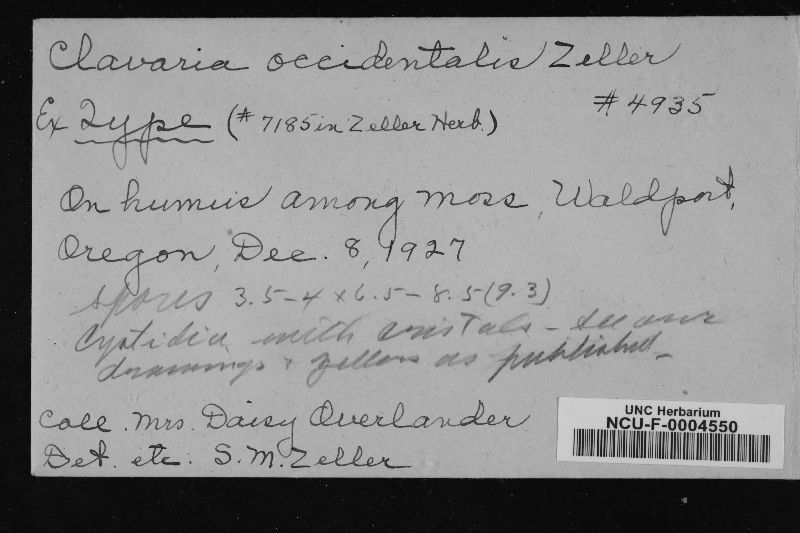 Clavaria occidentalis Zeller
# 4935
Ex Type (# 7185 in Zeller Herb.)
On humus among moss, Waldport,
Oregon, Dec. 8, 1927
Spores 3.5-4 x 6.5-8.5 (9.3)
Cystidia with crystals - see our
drawings & Zellers as published -
Coll. Mrs. Daisy Overlander
Det. etc. S.M. Zeller
UNC Herbarium
NCU-F-0004550